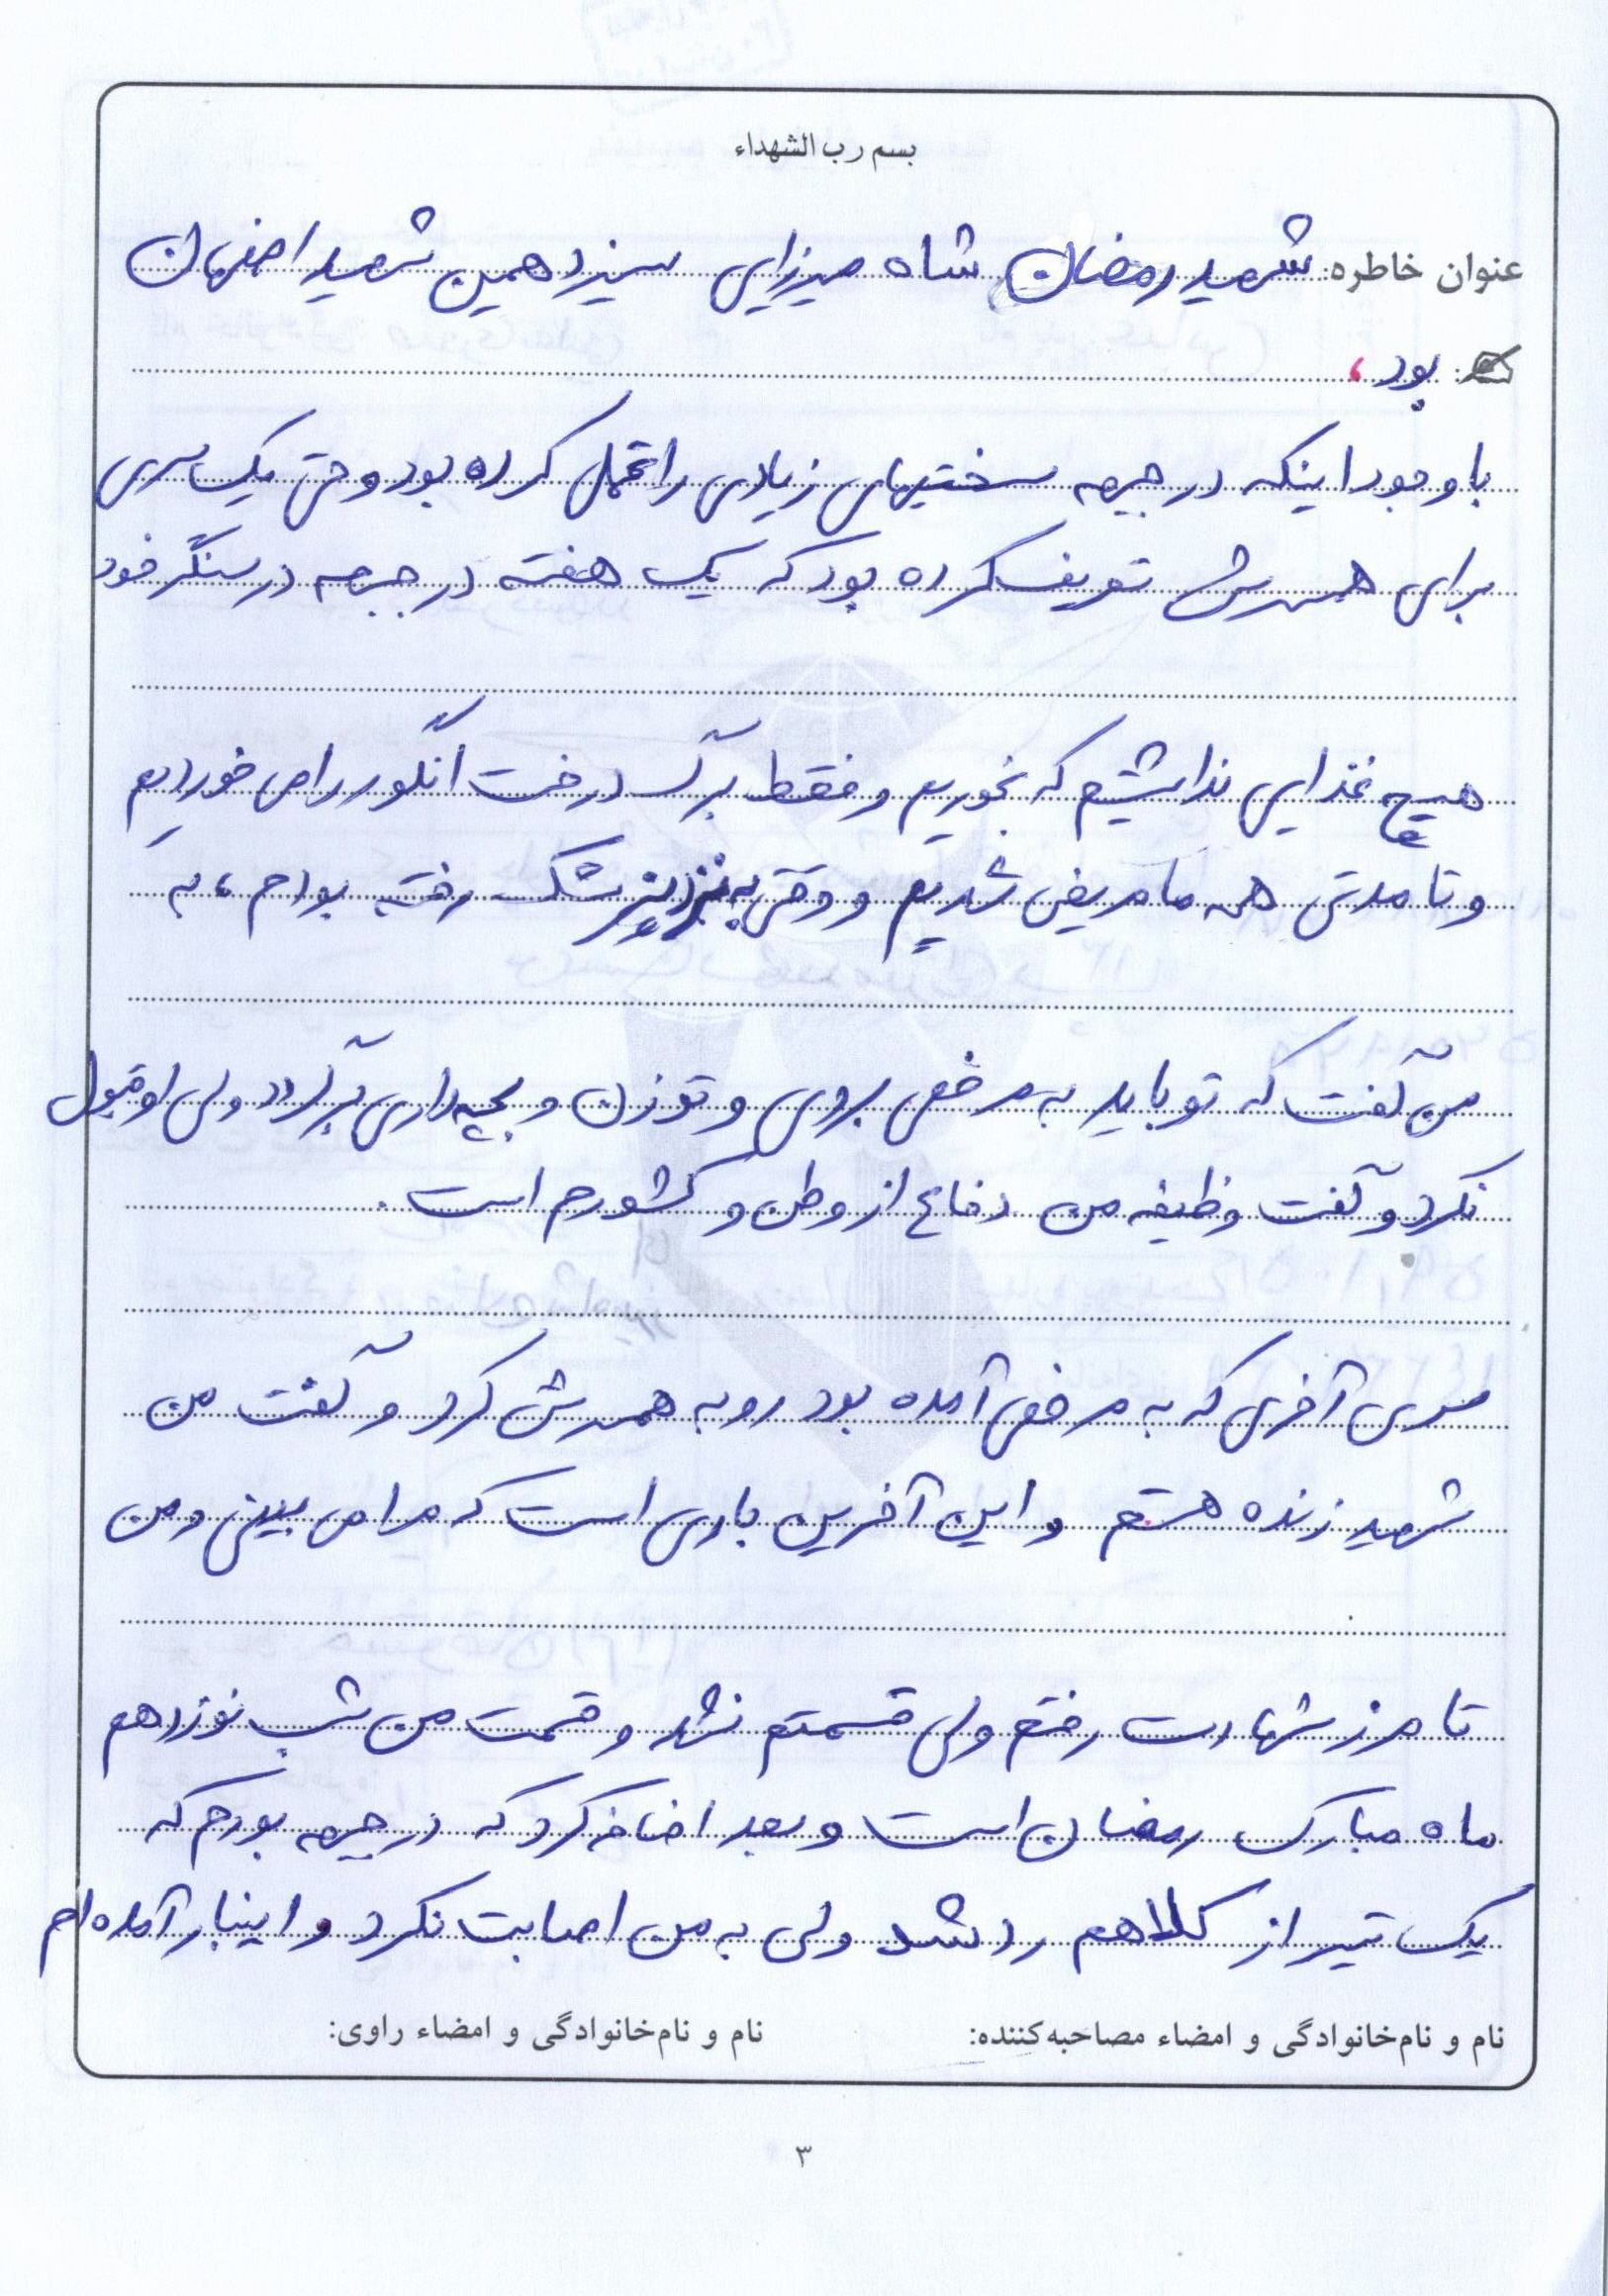 بسم رب الشهداء
عنوان خاطره: شهید رمضان شاه میرزایی سیزدهمین شهید اصفهان
بود،
با وجود اینکه در جبهه سختیهای زیادی را تحمل کرده بود و حتی یک سری
برای همسرش تعریف کرده بود که یک هفته در جبهه در سنگر خود
هیچ غذایی نداشتیم که بخوریم و فقط برگ درخت انگور را می خوردیم
و تا مدتی همه ما مریض شدیم و وقتی به نزد پزشک رفته بودم، به
من گفت که تو باید به مرخصی بروی و تو زن و بچه داری برگرد ولی او قبول
نکرد و گفت وظیفه من دفاع از وطن و کشورم است.
سری آخری که به مرخصی آمده بود رو به همسرش کرد و گفت من
شهید زنده هستم و این آخرین باری است که مرا می بینی و من
تا مرز شهادت رفتم ولی قسمتم نشد و قسمت من شب نوزدهم
ماه مبارک رمضان است و بعد اضافه کرد که در جبهه بودم که
یک تیر از کلاهم رد شد ولی به من اصابت نکرد و اینبار آمده ام
نام و نام‌خانوادگی و امضاء مصاحبه‌کننده: نام و نام‌خانوادگی و امضاء راوی:
۳